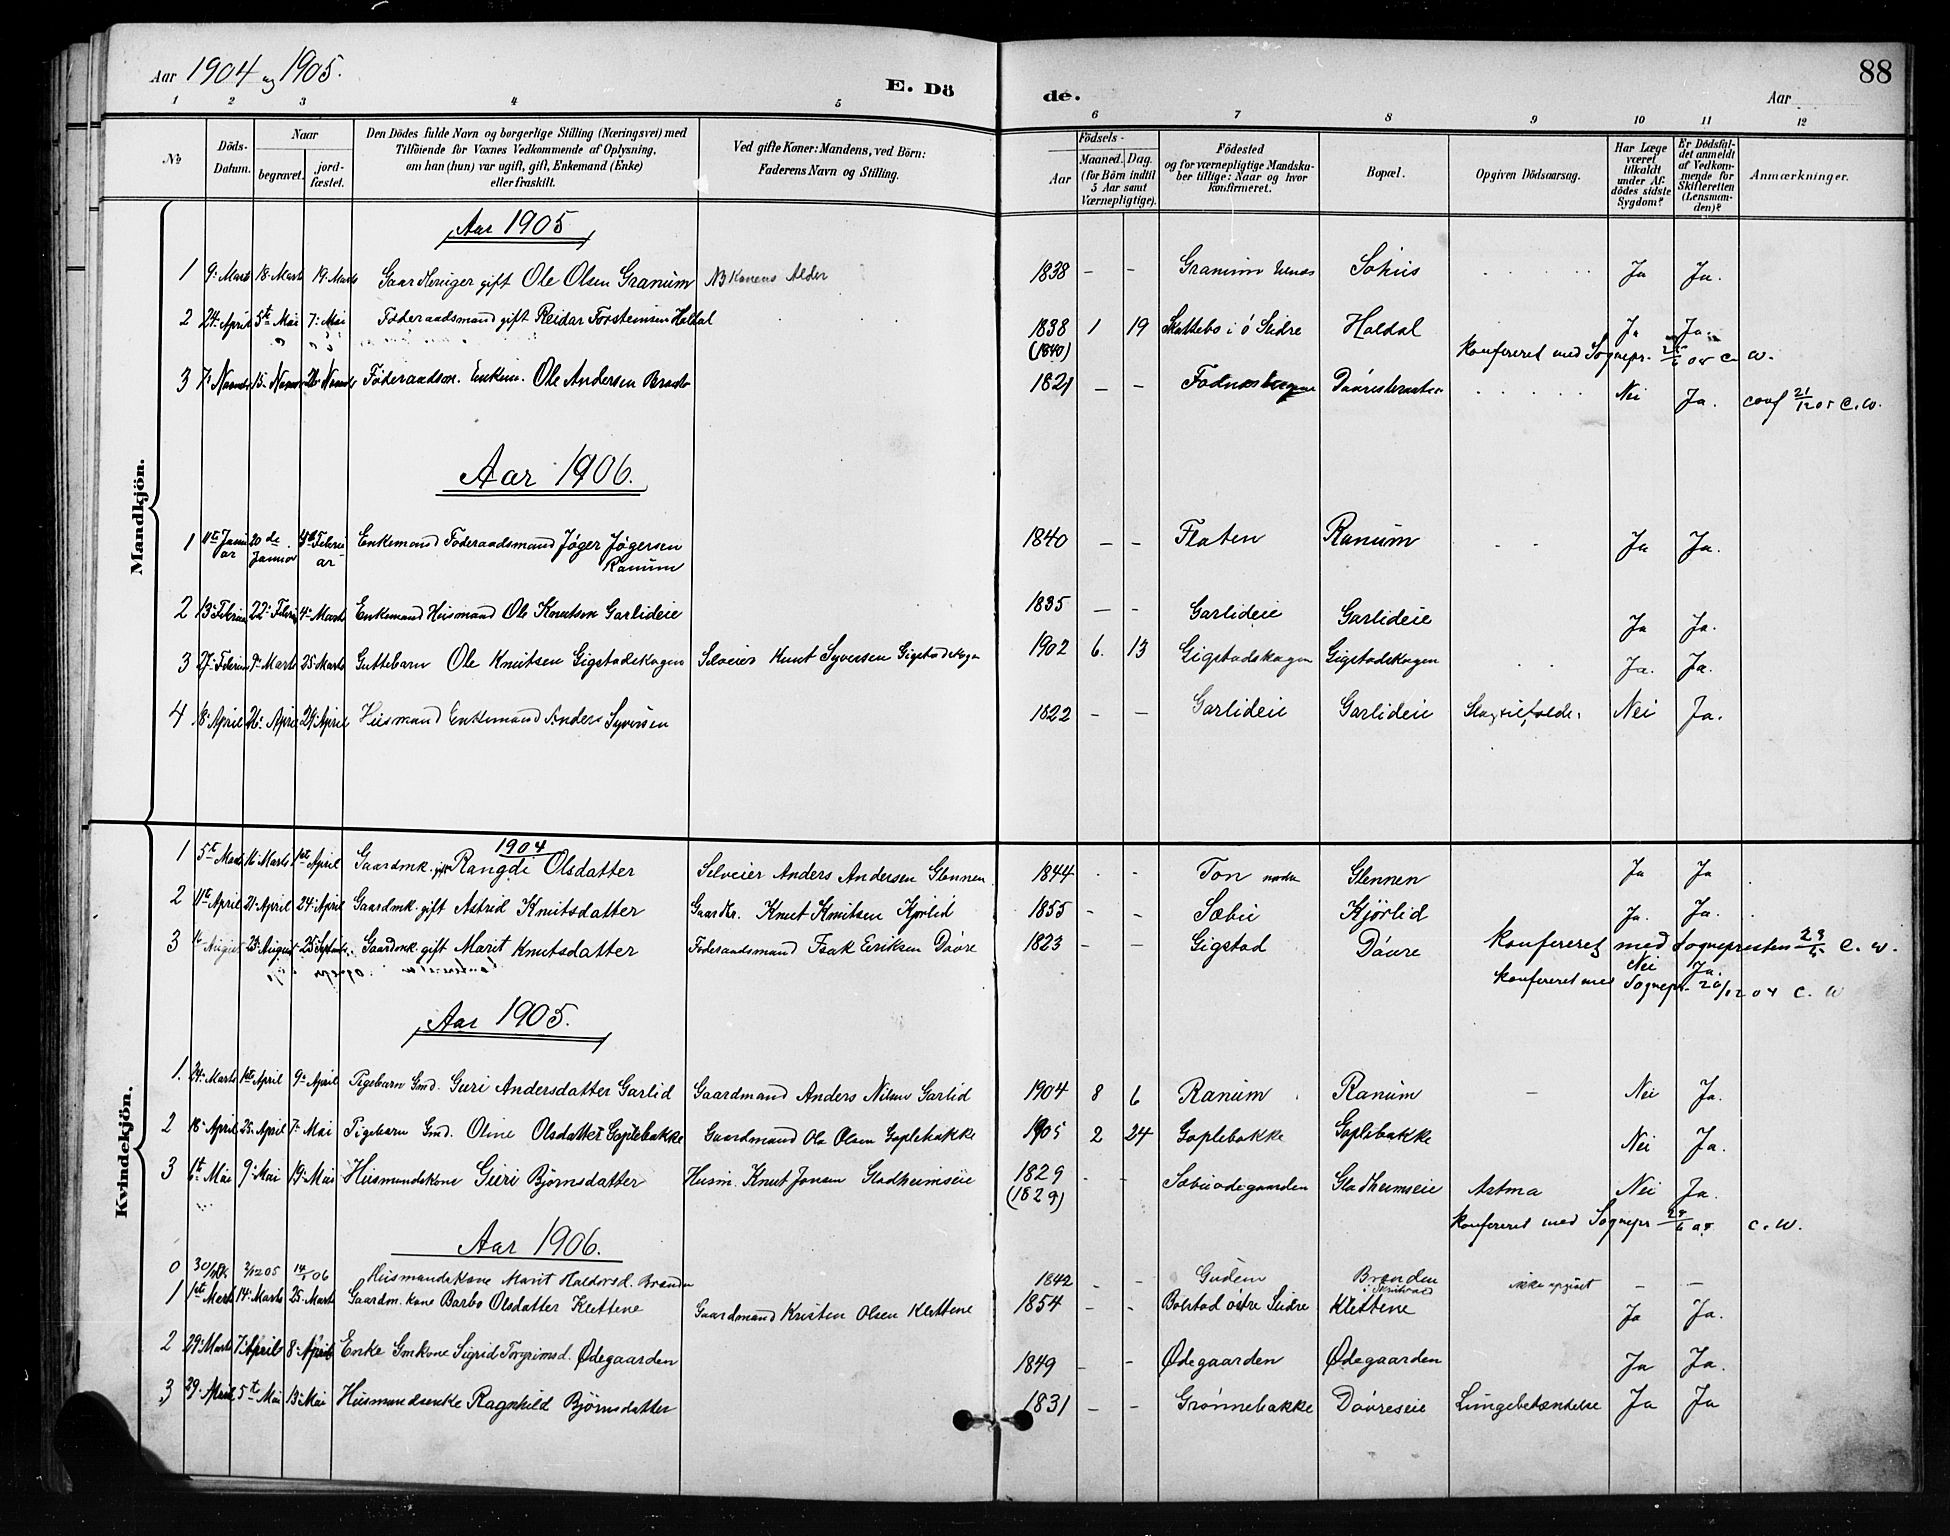 Aar 1904 og 1905.
E. Dö
de.
Aar
88
1 2 3 4 5 6 7 8 9 10 11 12
No
Döds-Datum.
Naar
begravet.
jord-fæstet.
Den Dödes fulde Navn og borgerlige Stilling (Næringsvei) med
Tilföiende for Voxnes Vedkommende af Oplysning,
om han (hun) var ugift, gift, Enkemand (Enke)
eller fraskilt.
Ved gifte Koner: Mandens, ved Börn:
Faderens Navn og Stilling.
Födsels-
Aar
Maaned. Dag.
(for Börn indtil
5 Aar samt
Værnepligtige).
Födested
og for værnepligtige Mandskaber tillige: Naar og hvor
konfirmeret.
Bopæl.
Opgiven Dödsaarsag.
Har Læge
været
tilkaldt
under Afdödes sidste
Sygdom?
Er Dödsfaldet anmeldt
af Vedkommende for
Skifteretten
(Lensmanden)?
Anmærkninger.
Mandkjön.
Aar 1905
1 9. Marts 18. Marts 19. Marts gift Ole Olsen Granum NB Konens Alder 1838 - - Granum Ja Ja.
2 24. April 5te Mai 7. Mai Föderaadsmand gift Reidar Torsteinsen Haldal 1838 1 19 i ö Slidre Haldal Ja Ja.
(1840) Konfereret med Sognepr. C. W.
3 7. 15. 26. Föderaadsm. Enkem. Ole Andersen 1821 - - Nei Ja. conf 21/12 05 C. W.
Aar 1906.
1 11te Januar 20de Januar Februar Enkemand Föderaadsmand Jøger Jøgersen Ranum 1840 - - Flaten Ranum Ja Ja.
2 13. 22. 4. Marts Enkemand Husmand Ole Knutsen Garlideie 1835 - - Garlideie Garlideie Ja Ja.
3 27. 9. Marts 25. Marts Guttebarn Ole Knutsen Gigstadskogen Selveier Knut Syversen Gigstadskogen 1902 6. 13 Gigstadskogen Gigstadskogen Ja. Ja.
4 18. April 26. April 29. April Husmand Enkemand Anders Syversen 1822 - - Garlideie Garlideie Nei Ja.
Kvindekjön.
1904
1 5te Marts 16. Marts 1ste April Gaardmk. gift Rangdi Olsdatter Selveier Anders Andersen Glennen 1844 - - Ton Glennen Ja Ja
2 11te April 21. April 24. April Gaardmk. gift Astrid Knutsdatter Gaardbr. Knut Knutsen Kjörlid 1855 - - Sæbu Kjörlid Ja. Ja.
3 August 25. August 25. Septemb. Gaardmk. gift Marit Knutsdatter Föderaadsmand Isak Eriksen Døvre 1823 - - Gigstad Døvre Konfereret med Sognepresten C. W.
Nei Ja.
Konfereret med Sognepr. 20/12 04 C. W
Aar 1905.
1. 24. Marts 1ste April 9. April Pigebarn Gmd. Guri Andersdatter Garlid Gaardmand Anders Nilsen Garlid 1904 8 6 Ranum Ranum - Nei Ja.
2 18. April 25. April 7. Mai Pigebarn Gmd. Oline Olsdatter Goplebakke Gaardmand Ole Olsen Goplebakke 1905 2 24 Goplebakke Goplebakke Nei Ja.
3 6te Mai 9. Mai 19. Mai Husmandskone Guri Bjørnsdatter Husm. Knut Jonsen Gladheimseie 1829 - - Sæbuødegaarden Gladheimseie Astma Nei Ja.
(1829) Konfereret med Sognepr C. W.
Aar 1906.
0 2/12 05 14/1 06 Husmandskone Marit Haldorsd. Brænden 1842 - - Gudem Brænden ikke opgivet - -
1 1ste Marts 14. Marts 25. Marts Gaardm. kone Barbo Olsdatter Klettene Gaardmand Kristen Olsen Klettene 1854 - - Bolstad østre Slidre Klettene Ja Ja.
2 29. Marts 7. April 8. April Enke Gmkone Sigrid Torgrimsd. Ødegaarden 1849 - - Ødegaarden Ødegaarden Ja Ja.
3 29. April 5te Mai 13. Mai Husmandsenke Ragnhild Bjørnsdatter 1831 - - Grønnebakke Døvreseie Lungebetændelse Ja Ja